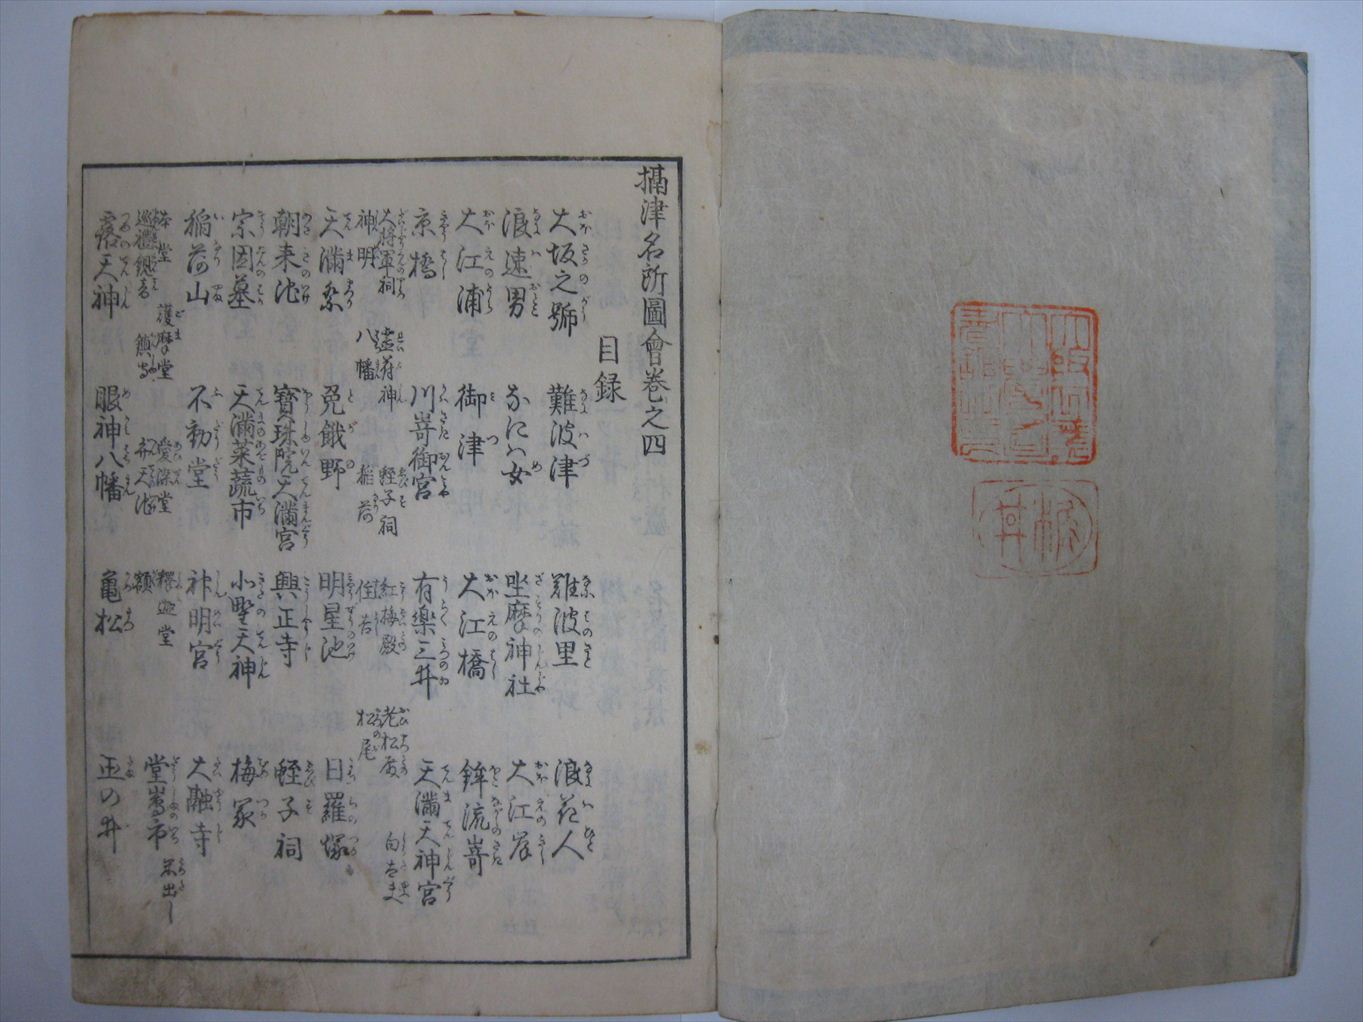 攝津名所圖會巻之四
目録
大坂之號 難波津 難波里 浪花人
浪速男 なには女 坐摩神社 大江岸
大江浦 御津 大江橋 鉾流嵜
京橋 川嵜御宮 有樂三井 天滿天神宮
大将軍祠 蛭子祠 紅梅殿 老松殿 白太夫
神明 八幡 稲荷 住吉 松尾
天滿祭 兎餓野 明星池 日羅塚
朝来池 寶珠院天滿宮 興正寺 蛭子祠
宗因墓 天滿菜蔬市 小野天神 梅冢
稲荷山 不動堂 神明宮 大融寺
本堂 護摩堂 愛染堂 釋迦堂
巡禮観音 弁天池 額 堂嶌市 米出し
露天神 眼神八幡 亀松 玉の井